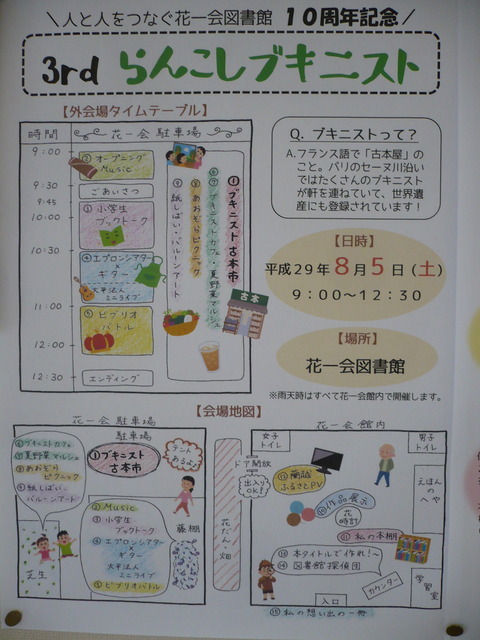 ＼人と人をつなぐ花一会図書館 10周年記念／
3rd らんこしブキニスト
【外会場タイムテーブル】
時間 花一会 駐車場
9:00
9:30
9:45
10:00
10:30
11:00
12:00
12:30
②オープニング
Music
ごあいさつ
③小学生
ブックトーク
④エプロンシアター
×
ギター
大平法人
ミニライブ
⑤ビブリオ
バトル
エンディング
⑨紙しばい・バルーンアート
⑧あおぞらピクニック
⑥ブキニストカフェ・⑦夏野菜マルシェ
①ブキニスト古本市
古本
Q. ブキニストって？
A.フランス語で「古本屋」の
こと。パリのセーヌ川沿い
ではたくさんのブキニスト
が軒を連ねていて、世界遺
産にも登録されています！
【日時】
平成29年8月5日（土）
9：00～12：30
【場所】
花一会図書館
※雨天時はすべて花一会館内で開催します。
【会場地図】
花一会 駐車場
駐車場
①ブキニスト
古本市
テント
あるよ♪
⑥ブキニストカフェ
⑦夏野菜マルシェ
⑧あおぞら
ピクニック
⑨紙しばい・
バルーンアート
芝生
②Music
③小学生
ブックトーク
④エプロンシアター
×
ギター
大平法人
ミニライブ
⑤ビブリオバトル
藤棚
花だん・畑
花一会 館内
女子
トイレ
男子
トイレ
ドア開放
出入り
OK!
蘭越
ふるさとPV
⑩作品展示
花
時計
えほん
の
へや
⑪私の本棚
⑬本タイトルで作れ!～
⑭図書館探偵団
カウンター
学習室
入口
⑮私の想い出の一冊